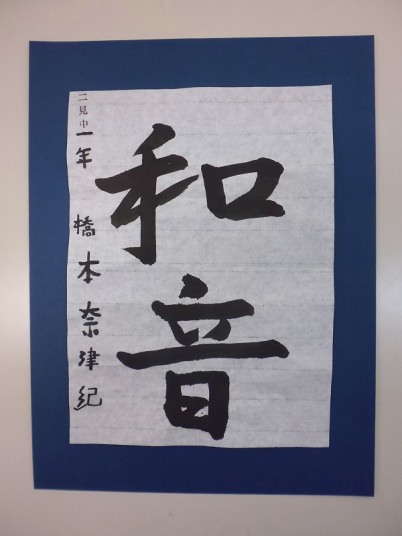 和音
二見中一年 橋本奈津紀